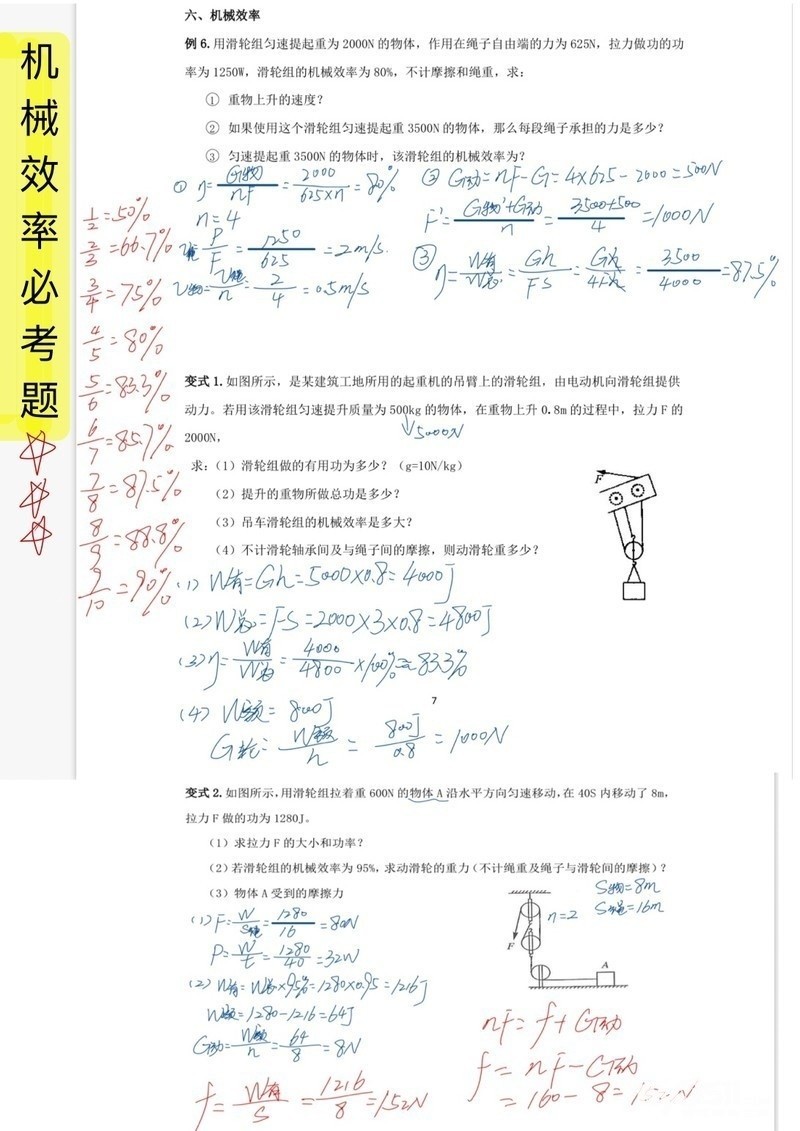 机械效率必考题
六、机械效率
例 6. 用滑轮组匀速提起重为 2000N 的物体，作用在绳子自由端的力为 625N，拉力做功的功
率为 1250W，滑轮组的机械效率为 80%，不计摩擦和绳重，求：
① 重物上升的速度？
② 如果使用这个滑轮组匀速提起重 3500N 的物体，那么每段绳子承担的力是多少？
③ 匀速提起重 3500N 的物体时，该滑轮组的机械效率为？
① η=G物/nF=2000/625×n=80%
n=4
v绳=P/F=1250/625=2m/s.
v物=v绳/n=2/4=0.5m/s
② G动=nF-G=4×625-2000=500N
F'=G物'+G动/n=3500+500/4=1000N
③ η=W有/W总=Gh/FS=Gh/4Fh=3500/4000=87.5%
1/2=50%
2/3=66.7%
3/4=75%
4/5=80%
5/6=83.3%
6/7=85.7%
7/8=87.5%
8/9=88.8%
9/10=90%
变式 1. 如图所示，是某建筑工地所用的起重机的吊臂上的滑轮组，由电动机向滑轮组提供
动力。若用该滑轮组匀速提升质量为 500kg 的物体，在重物上升 0.8m 的过程中，拉力 F 的
2000N，
↓5000N
求：（1）滑轮组做的有用功为多少？（g=10N/kg）
（2）提升的重物所做总功是多少？
（3）吊车滑轮组的机械效率是多大？
（4）不计滑轮轴承间及与绳子间的摩擦，则动滑轮重多少？
F
(1) W有=Gh=5000×0.8=4000J
(2) W总=FS=2000×3×0.8=4800J
(3) η=W有/W总=4000/4800×100%≈83.3%
(4) W额=800J
G轮=W额/h=800J/0.8=1000N
7
变式 2. 如图所示，用滑轮组拉着重 600N 的物体 A 沿水平方向匀速移动，在 40S 内移动了 8m，
拉力 F 做的功为 1280J。
（1）求拉力 F 的大小和功率？
（2）若滑轮组的机械效率为 95%，求动滑轮的重力（不计绳重及绳子与滑轮间的摩擦）？
（3）物体 A 受到的摩擦力
S物=8m
S绳=16m
n=2
F
A
(1) F=W/S绳=1280/16=80N
P=W/t=1280/40=32W
(2) W有=W总×95%=1280×0.95=1216J
W额=1280-1216=64J
G动=W额/h=64/8=8N
f=W有/S=1216/8=152N
nF=f+G动
f=nF-G动
=160-8=152N